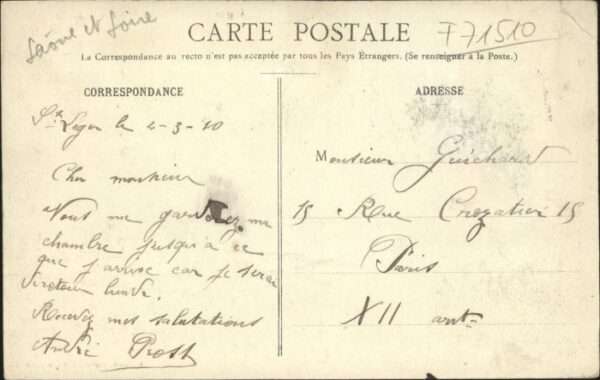 Saône et Loire
CARTE POSTALE
F71510
La Correspondance au recto n'est pas acceptée par tous les Pays Étrangers. (Se renseigner à la Poste.)
CORRESPONDANCE
St Leger le 2-3-10
Cher monsieur
Vous me garderez ma
chambre jusqu'à ce
que j'arrive car je serai
de retour lundi.
Recevez mes salutations
André Prost
ADRESSE
Monsieur Guichard
15 Rue Crozatier 15
Paris
XII arrt